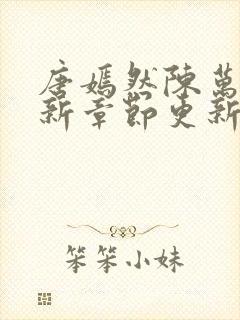 唐嫣然陳萬
新章節更新
笨笨小妹